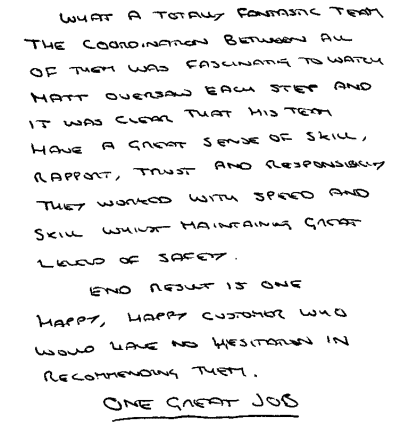 WHAT A TOTALLY FANTASTIC TEAM
THE COORDINATION BETWEEN ALL
OF THEM WAS FASCINATING TO WATCH
MATT OVERSAW EACH STEP AND
IT WAS CLEAR THAT HIS TEAM
HAVE A GREAT SENSE OF SKILL,
RAPPORT, TRUST AND RESPONSIBILITY
THEY WORKED WITH SPEED AND
SKILL WHILST MAINTAINING GREAT
LEVELS OF SAFETY.
END RESULT IS ONE
HAPPY, HAPPY CUSTOMER WHO
WOULD HAVE NO HESITATION IN
RECOMMENDING THEM.
ONE GREAT JOB